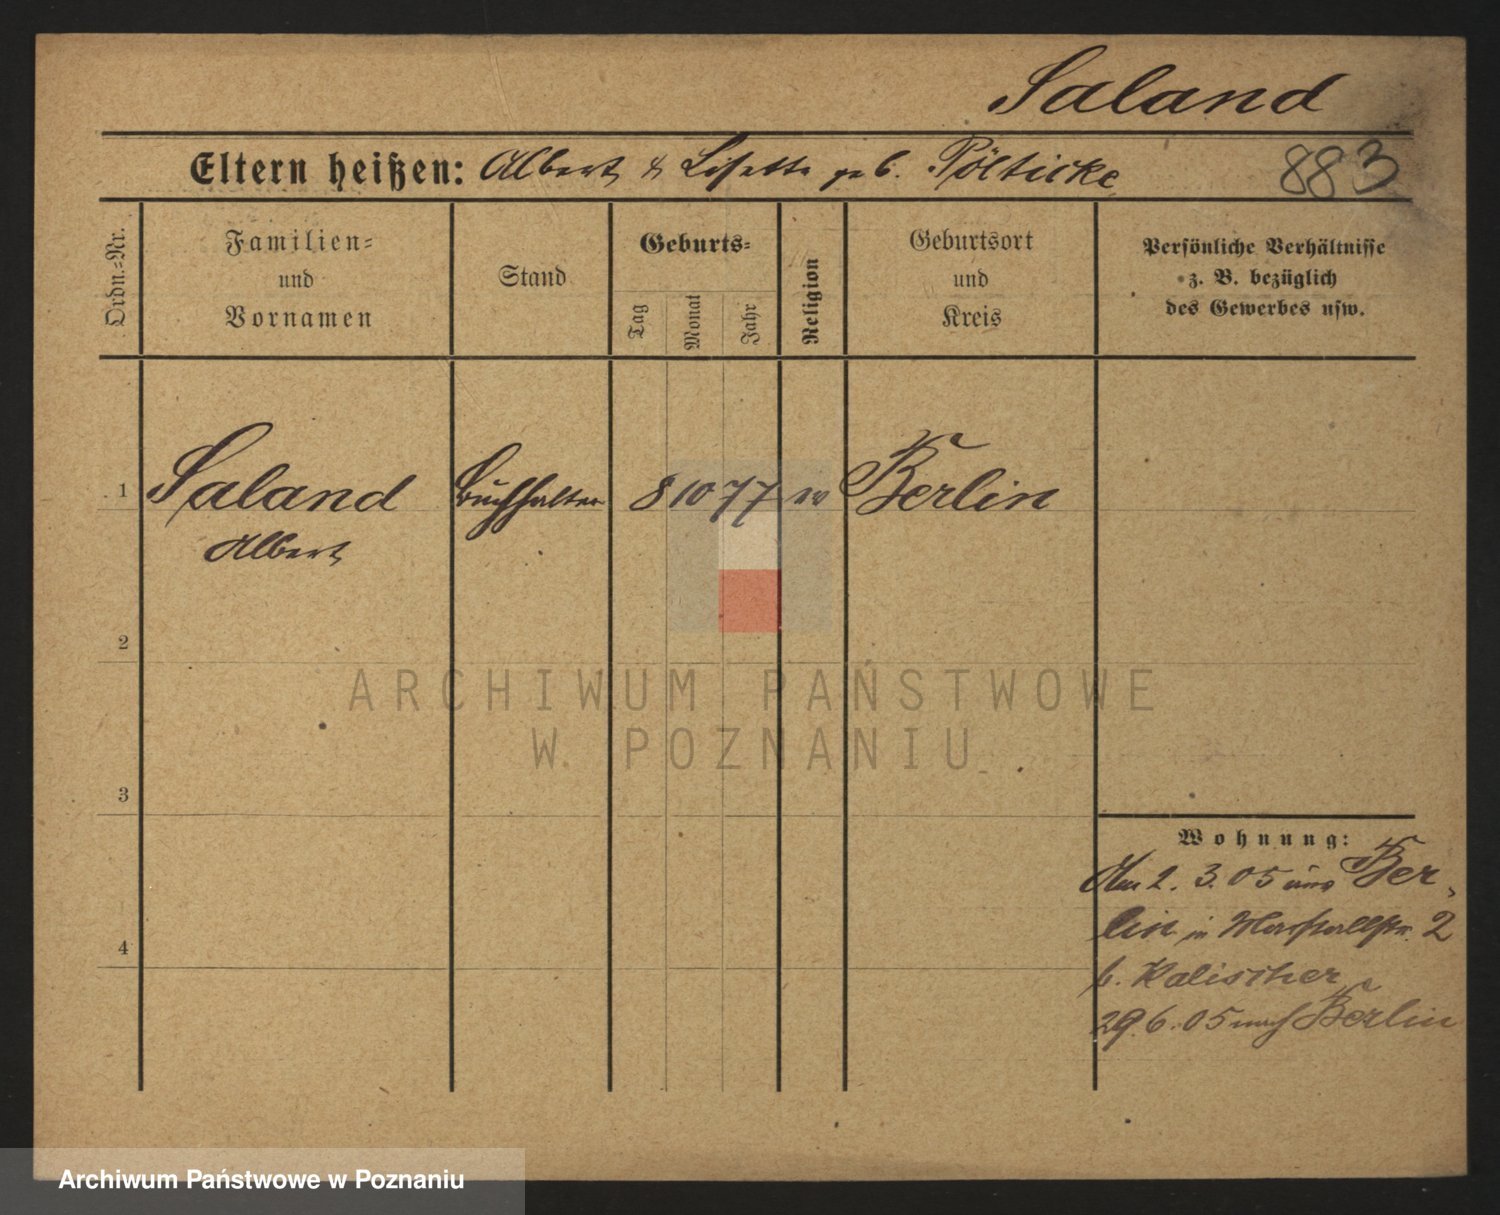 Saland
Eltern heißen: Albert & Lisette geb. Pölticke
883
Ordn.-Nr.
Familien-
und
Vornamen
Stand
Geburts-
Tag
Monat
Jahr
Religion
Geburtsort
und
Kreis
Persönliche Verhältnisse
z. B. bezüglich
des Gewerbes usw.
1 Saland Buchhalter 8 10 77 ev Berlin
Albert
2
3
4
Wohnung:
Am 2. 3. 05 aus Ber-
lin in Marstallstr. 2
b. Kalischer
29. 6. 05 nach Berlin
ARCHIWUM PAŃSTWOWE
W POZNANIU
Archiwum Państwowe w Poznaniu